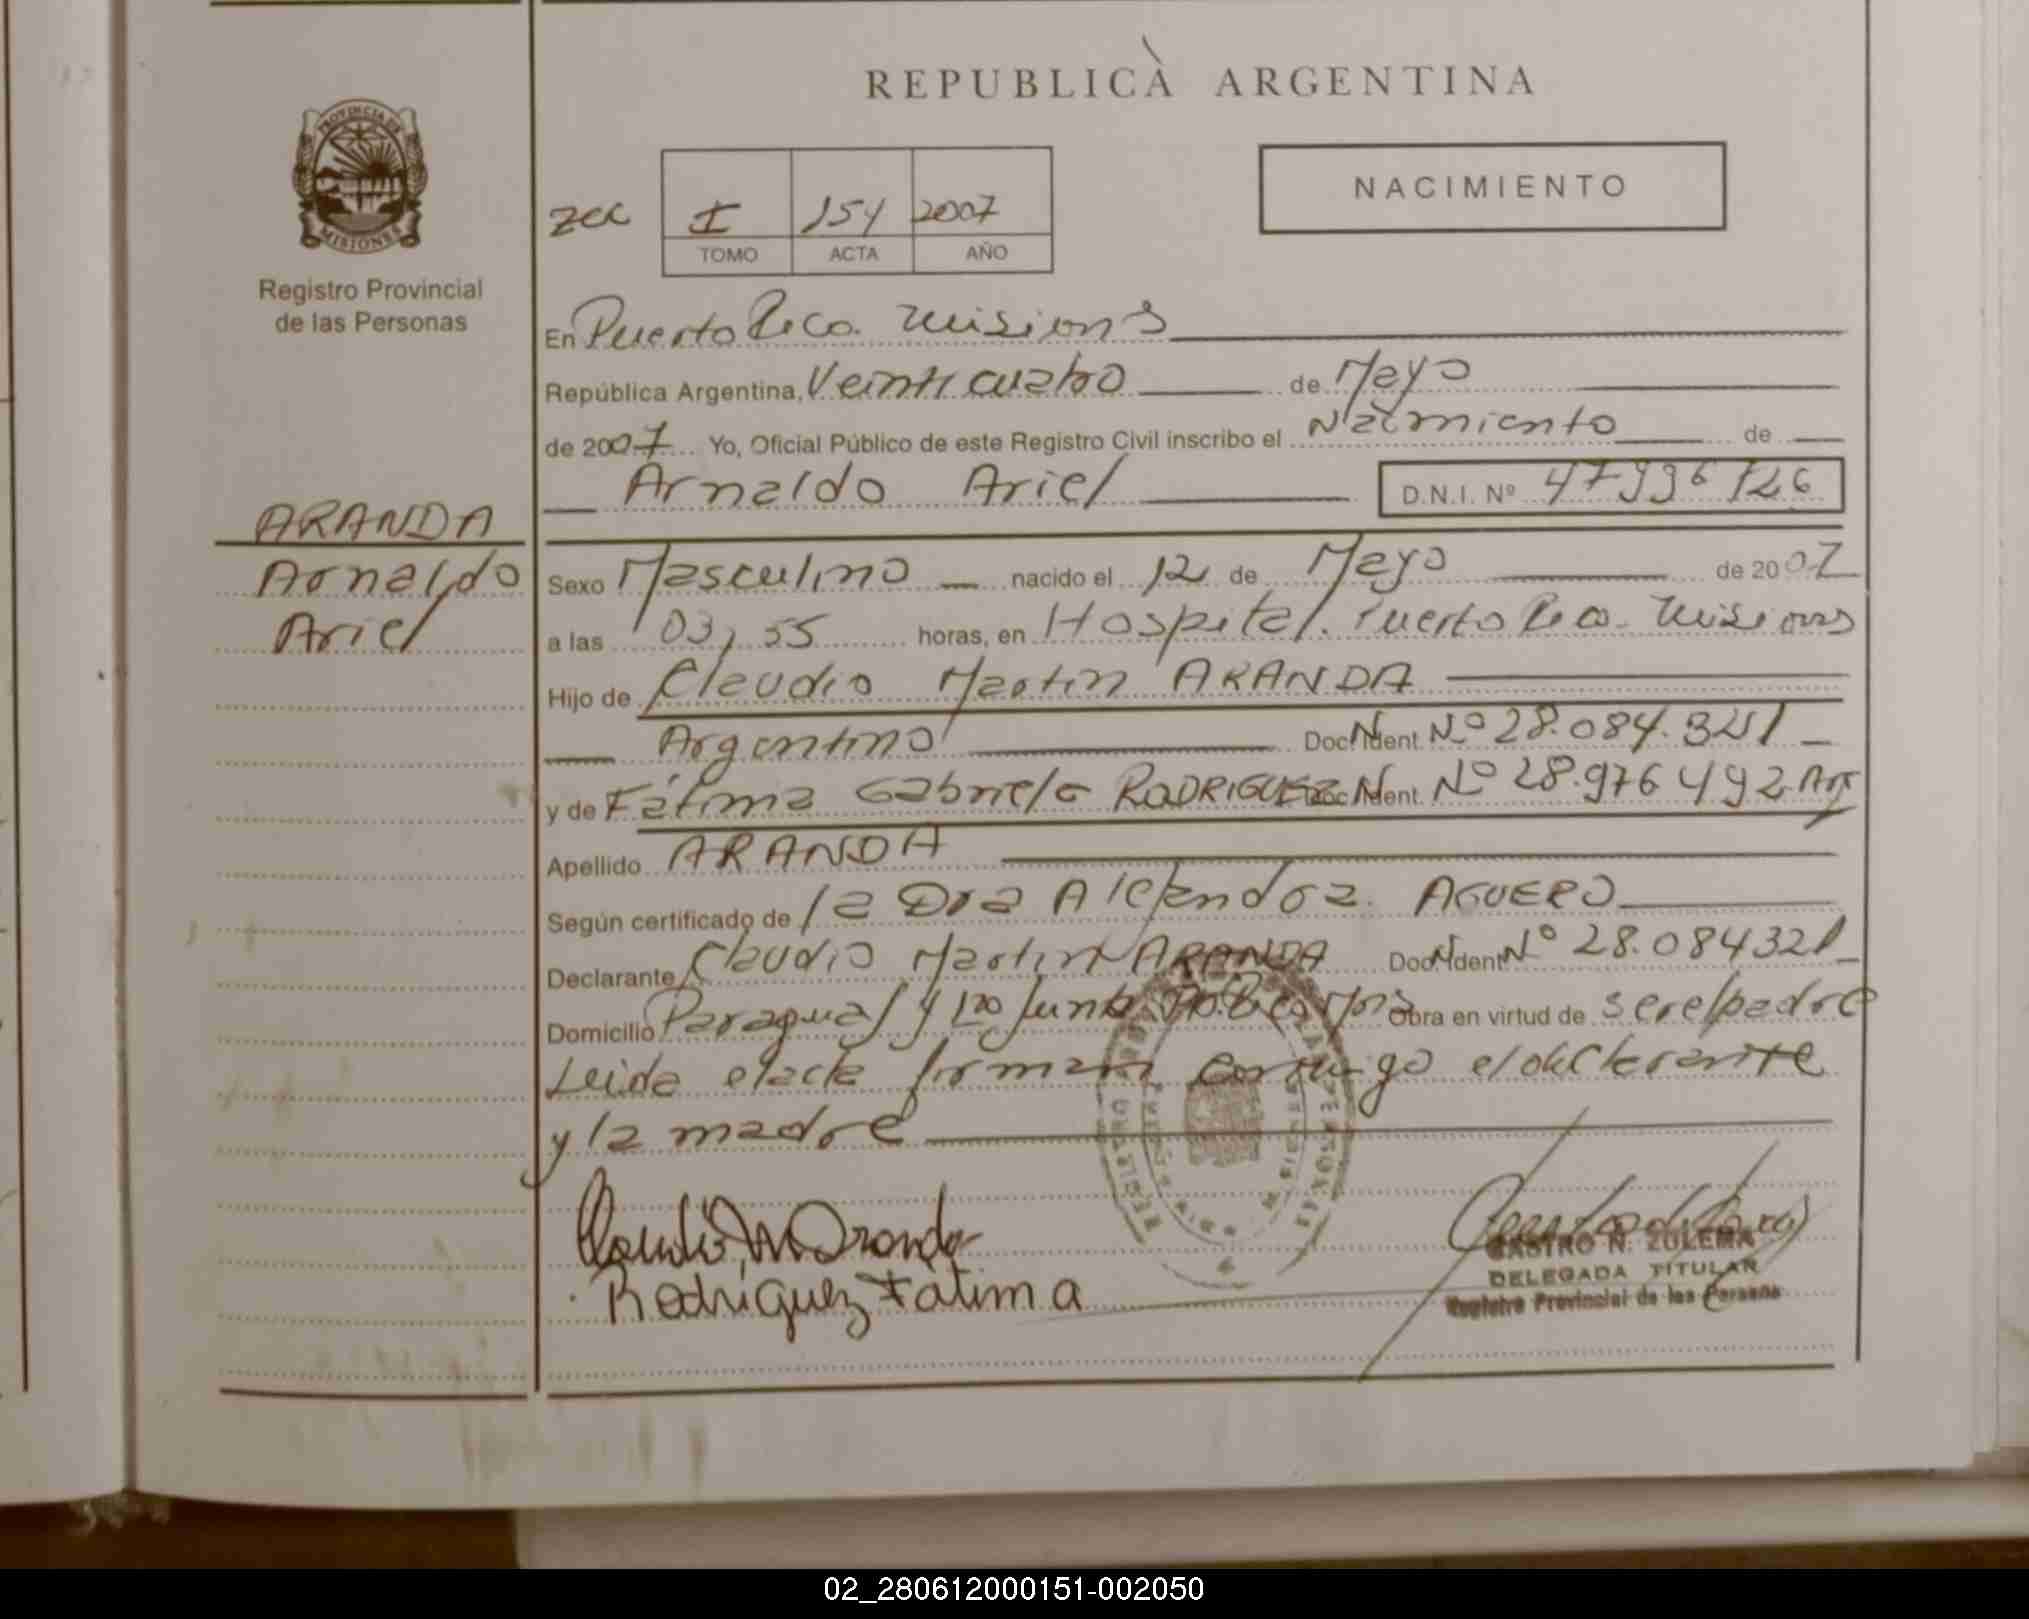 REPUBLICA ARGENTINA
PROVINCIA DE
MISIONES
Registro Provincial
de las Personas
NACIMIENTO
I 154 2007
TOMO ACTA AÑO
En Puerto Rico. Misiones
República Argentina, Veinticuatro de Mayo
de 2007 Yo, Oficial Público de este Registro Civil inscribo el Nacimiento de
Arnaldo Ariel D.N.I. Nº 47996726
ARANDA
Arnaldo
Ariel
Sexo Masculino nacido el 12 de Mayo de 2007
a las 03,55 horas, en Hospital. Puerto Rico. Misiones
Hijo de Claudio Martin ARANDA
Argentino Doc. Ident. Nº 28.084.321
y de Fátima Gabriela RODRIGUEZ Doc. Ident. Nº 28.976492 Arg
Apellido ARANDA
Según certificado de la Dra Alejandra AGUERO
Declarante Claudio Martin ARANDA Doc. Ident Nº 28.084321
Domicilio Paraguay y Obra en virtud de ser el padre
Leida el acta firman conmigo el declarante
y la madre
Claudio M Aranda
Rodriguez Fatima
CASTRO N. ZULEMA
DELEGADA TITULAR
Registro Provincial de las Persona
02_280612000151-002050